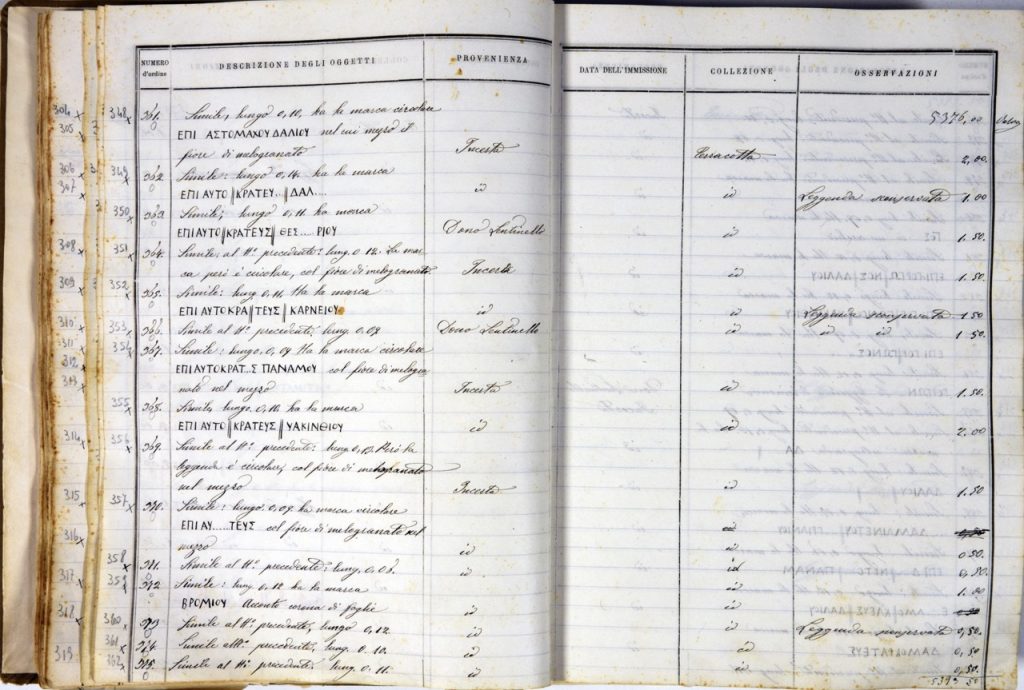 NUMERO d'ordine DESCRIZIONE DEGLI OGGETTI PROVENIENZA DATA DELL'IMMISSIONE COLLEZIONE OSSERVAZIONI
5376,00
348 361. Simile, lungo 0,10, ha la marca circolare
ΕΠΙ ΑΣΤΟΜΑΧΟΥ ΔΑΛΙΟΥ nel cui mezzo il
fiore di melogranato Incerta Terracotta 2,00.
349 362. Simile: lungo 0,14. ha la marca
ΕΠΙ ΑΥΤΟ||ΚΡΑΤΕΥ...||ΔΑΛ.... id id Leggenda conservata 1.00
350 363. Simile, lungo 0,11. ha marca
ΕΠΙ ΑΥΤΟ||ΚΡΑΤΕΥΣ||ΘΕΣ....ΡΙΟΥ Dono Lentinello id 1.50.
351 364. Simile, al N.o precedente: lung. 0.12. La mar-
ca però è circolare, col fiore di melogranato Incerta id 1.50
352 365. Simile: lung. 0,11. Ha la marca
ΕΠΙ ΑΥΤΟΚΡΑ||ΤΕΥΣ||ΚΑΡΝΕΙΟΥ id id Leggenda conservata 1.50
353 366. Simile al N.o precedente: lung. 0.08 Dono Lentinello id id id 1.50
354 367. Simile: lungo. 0,09 Ha la marca circolare
ΕΠΙ ΑΥΤΟΚΡΑΤ...Σ ΠΑΝΑΜΟΥ col fiore di melogra-
nato nel mezzo Incerta id 1.50.
355 368. Simile, lungo. 0,11. ha la marca
ΕΠΙ ΑΥΤΟ||ΚΡΑΤΕΥΣ||ΥΑΚΙΝΘΙΟΥ id id 2.00
356 369. Simile al N.o precedente: lung. 0,13. Però la
leggenda è circolare, col fiore di melogranato
nel mezzo Incerta id 1.50
357 370. Simile: lungo. 0,09 ha marca circolare
ΕΠΙ ΑΥ.....ΤΕΥΣ col fiore di melogranato nel
mezzo id id 0.50.
358 371. Simile al N.o precedente: lung. 0,08. id id 0,50
359 372. Simile: lung. 0,12 ha la marca
ΒΡΟΜΙΟΥ Accanto corona di foglie id id 1.00
360 373. Simile al N.o precedente, lungo 0,12. id id Leggenda conservata 0,50.
361 374. Simile al N.o precedente, lung. 0.10. id id 0,50
362 375. Simile al N.o precedente: lung. 0.11. id id 0,50.
304
305
306
307
308
309
310
311
312
313
314
315
316
317
318
319